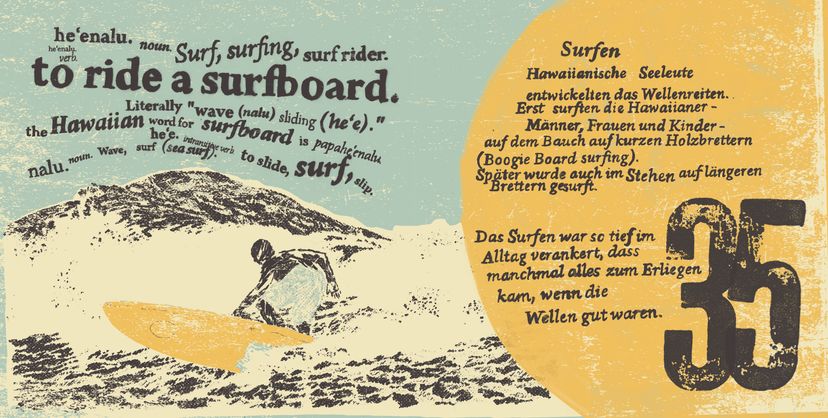 he'enalu. noun. Surf, surfing, surf rider.
he'enalu. verb.
to ride a surfboard.
Literally "wave (nalu) sliding (he'e)."
the Hawaiian word for surfboard is papahe'enalu
he'e. intransitive verb to slide, surf, slip.
nalu. noun. Wave, surf (sea surf).
Surfen
Hawaiianische Seeleute
entwickelten das Wellenreiten.
Erst surften die Hawaiianer -
Männer, Frauen und Kinder -
auf dem Bauch auf kurzen Holzbrettern
(Boogie Board surfing).
Später wurde auch im Stehen auf längeren
Brettern gesurft.
Das Surfen war so tief im
Alltag verankert, dass
manchmal alles zum Erliegen
kam, wenn die
Wellen gut waren.
35